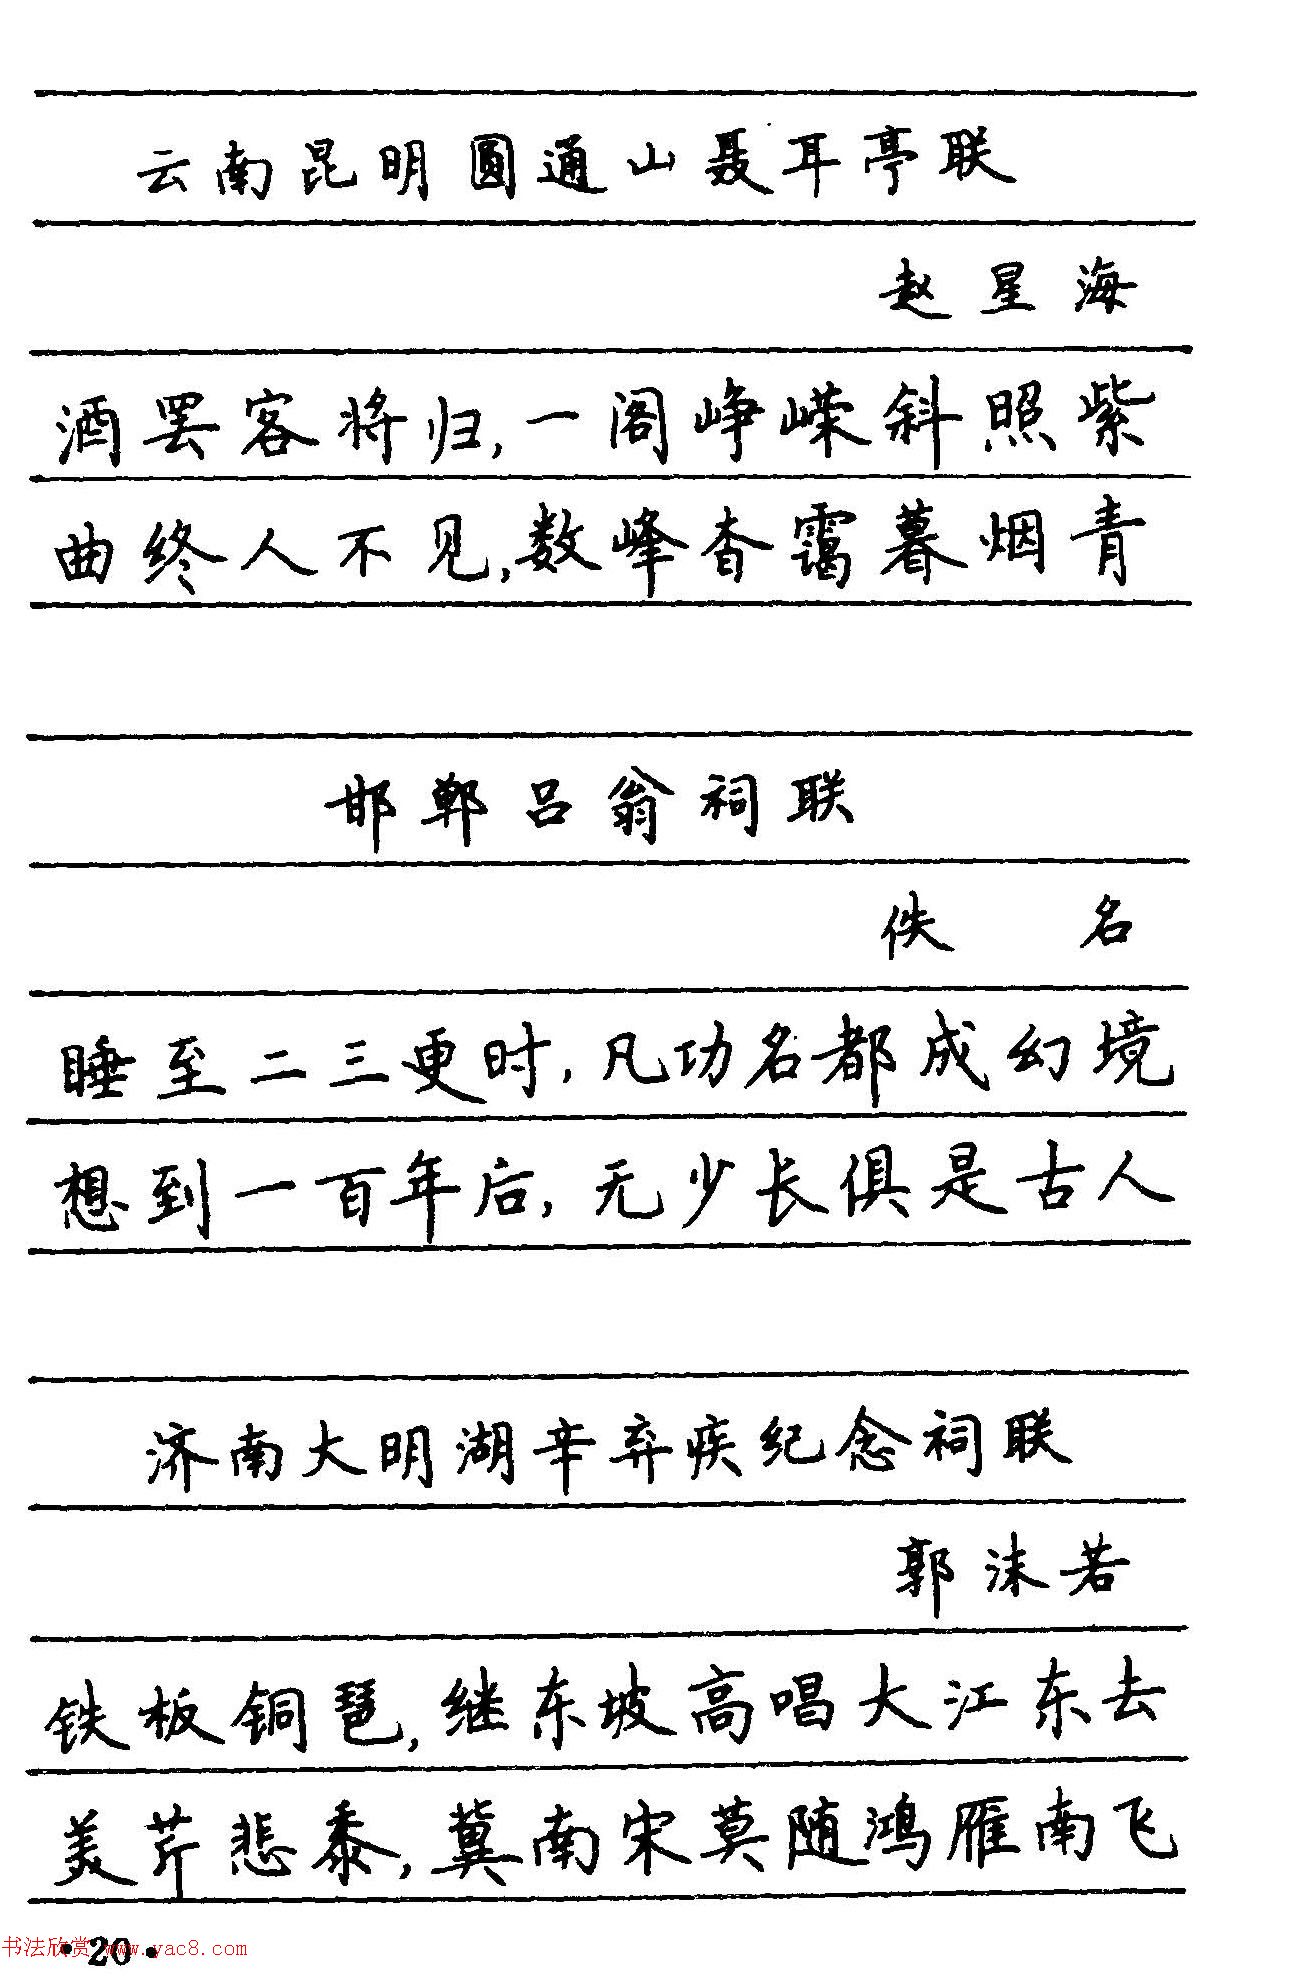 云南昆明圆通山聂耳亭联
赵星海
酒罢客将归,一阁峥嵘斜照紫
曲终人不见,数峰杳霭暮烟青
邯郸吕翁祠联
佚名
睡至二三更时,凡功名都成幻境
想到一百年后,无少长俱是古人
济南大明湖辛弃疾纪念祠联
郭沫若
铁板铜琶,继东坡高唱大江东去
美芹悲黍,冀南宋莫随鸿雁南飞
书法欣赏 www.yac8.com
·20·